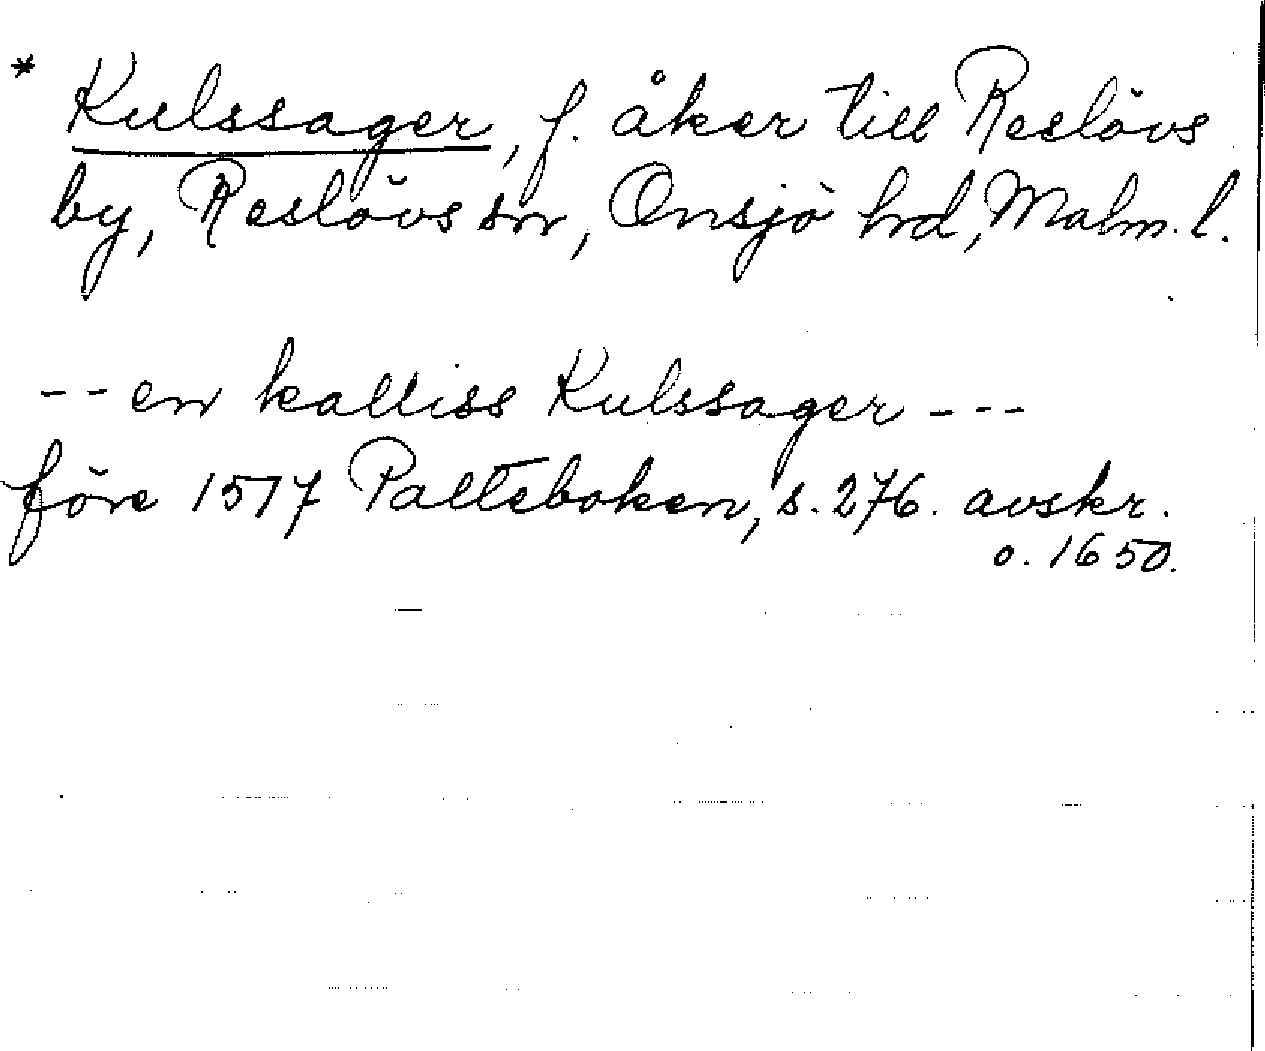 * Kulssager, f. åker till Reslövs
by, Reslövs sn, Onsjö hd, Malm. l.
-- en kalliss Kulssager ---
före 1517 Palteboken, s. 276. avskr.
o. 1650.